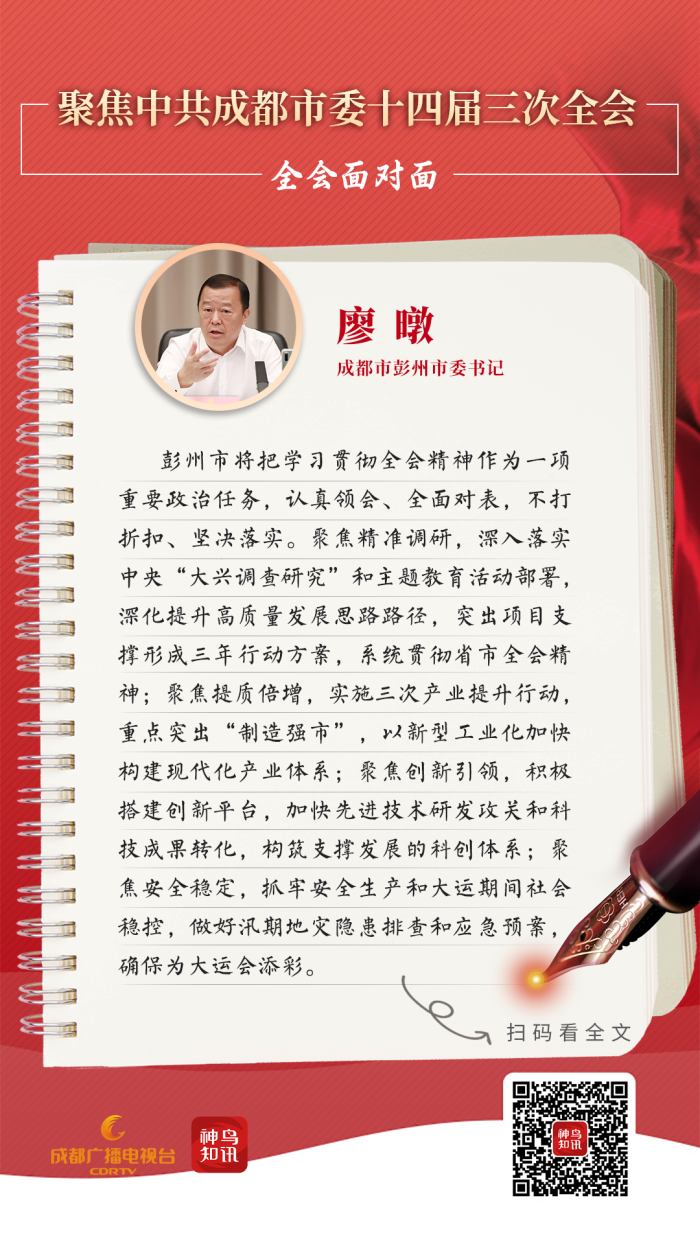 聚焦中共成都市委十四届三次全会
全会面对面
廖暾
成都市彭州市委书记
彭州市将把学习贯彻全会精神作为一项
重要政治任务，认真领会、全面对表，不打
折扣、坚决落实。聚焦精准调研，深入落实
中央“大兴调查研究”和主题教育活动部署，
深化提升高质量发展思路路径，突出项目支
撑形成三年行动方案，系统贯彻省市全会精
神；聚焦提质倍增，实施三次产业提升行动，
重点突出“制造强市”，以新型工业化加快
构建现代化产业体系；聚焦创新引领，积极
搭建创新平台，加快先进技术研发攻关和科
技成果转化，构筑支撑发展的科创体系；聚
焦安全稳定，抓牢安全生产和大运期间社会
稳控，做好汛期地灾隐患排查和应急预案，
确保为大运会添彩。
扫码看全文
成都广播电视台
CDRTV
神鸟
知讯
神鸟
知讯